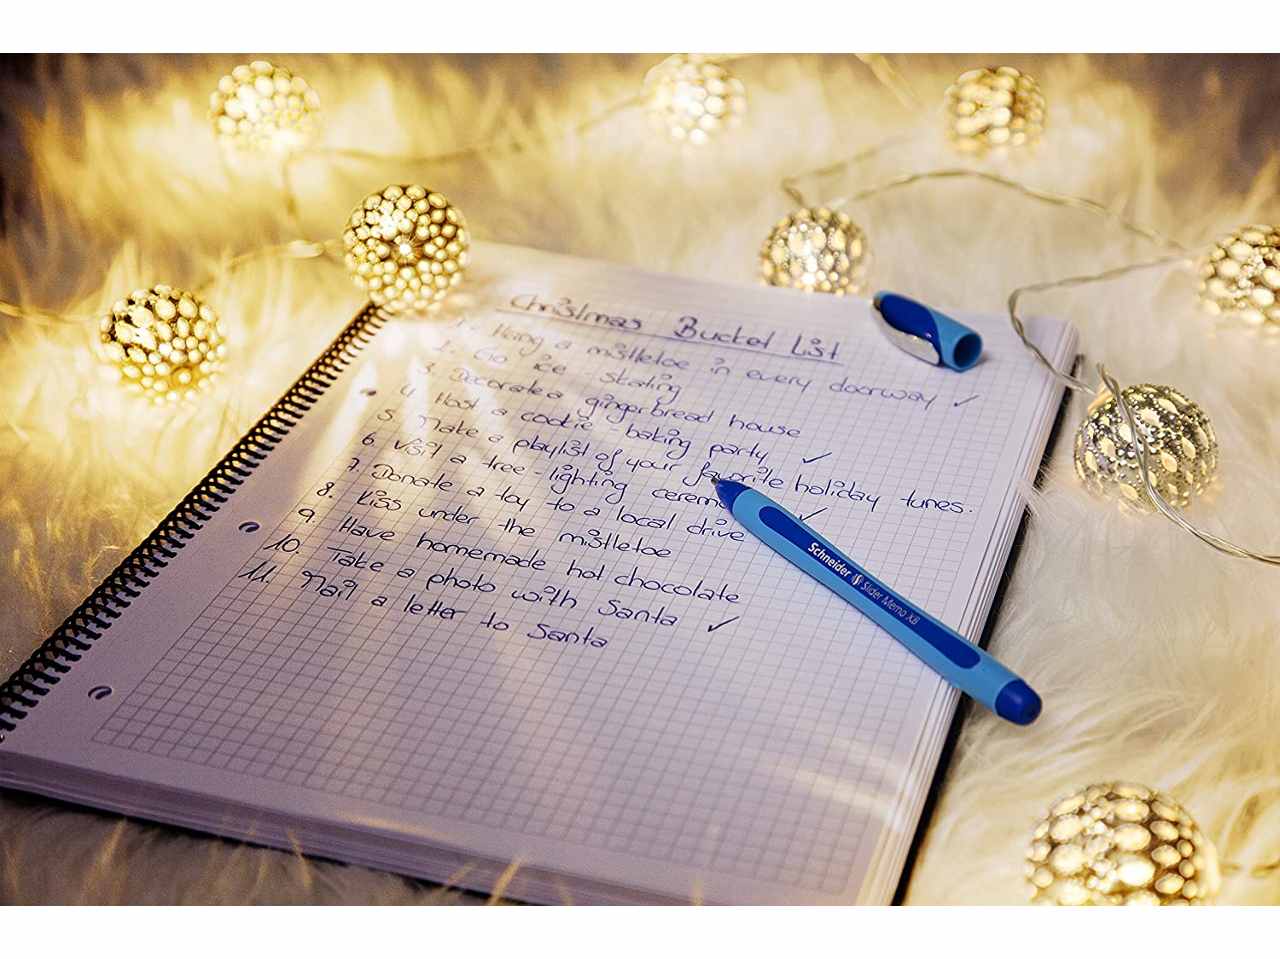 Christmas Bucket List
1. Hang a mistletoe in every doorway ✓
2. Go ice skating
3. Decorate a gingerbread house
4. Host a cookie baking party ✓
5. Make a playlist of your favorite holiday tunes.
6. Visit a tree-lighting cerem ✓
7. Donate a toy to a local drive
8. Kiss under the mistletoe
9. Have homemade hot chocolate
10. Take a photo with Santa ✓
11. Mail a letter to Santa
Schneider Slider Memo XB